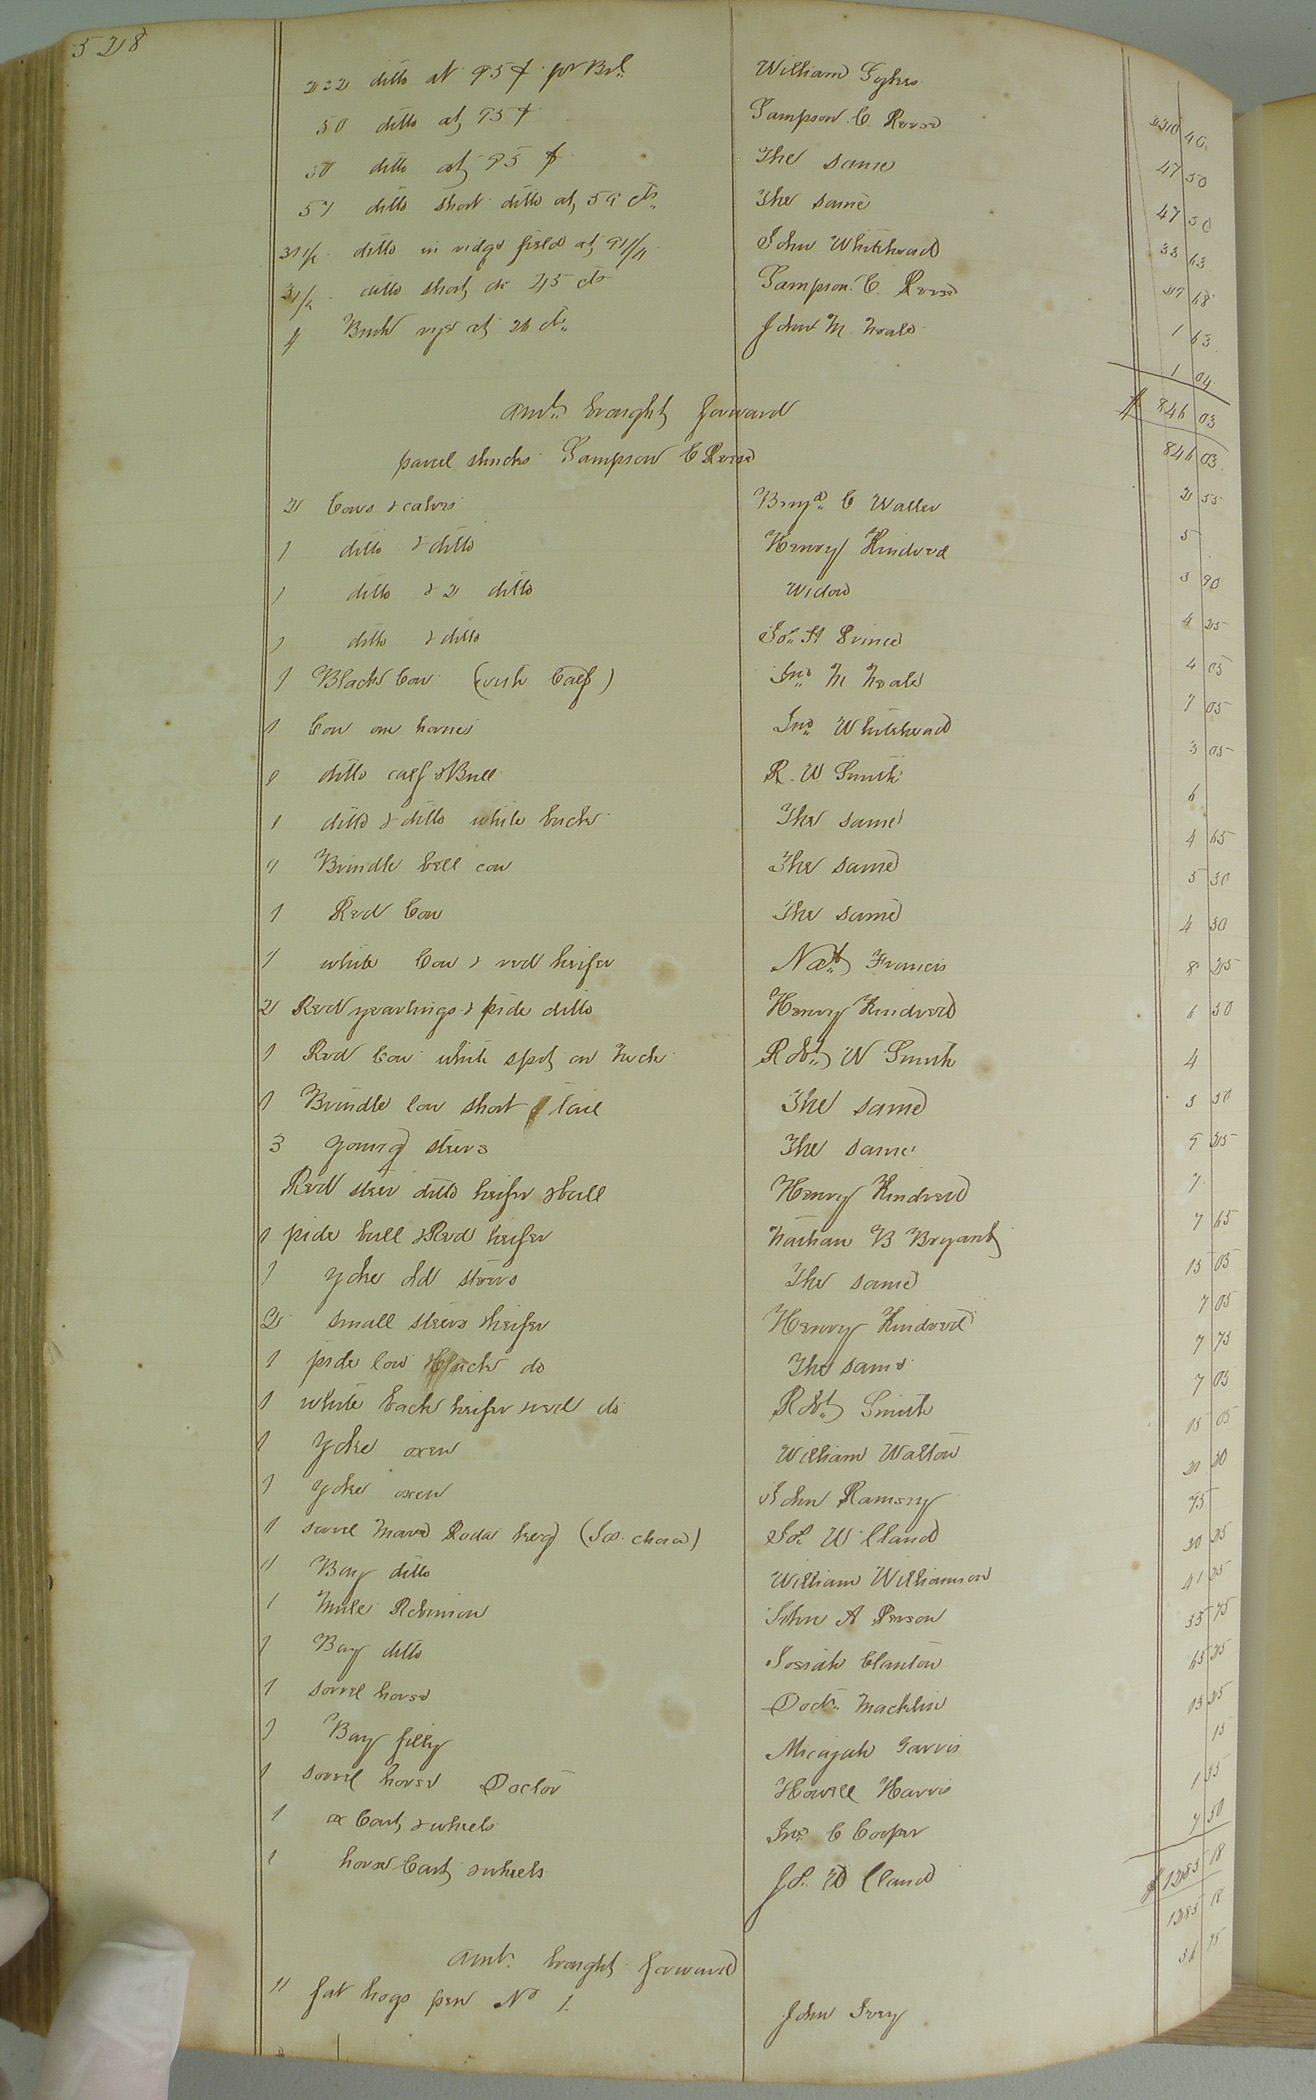 528
222 ditto at 95 ¢ pr Brl. William Sykes 210 40
50 ditto at 95 ¢ Sampson C. Reese 47 50
50 ditto at 95 ¢ The same 47 50
57 ditto short ditto at 59 cts. The same 33 63
31 1/2 ditto in ridge field at 91 1/4 John Whitehead 28 68
3 1/2 ditto short do 45 cts Sampson C. Reese 1 63
4 Bush rye at 26 cts. John M. Neale 1 04
$ 846 03
Amt. brought forward 846 03
parcel shucks Sampson C Reese 2 55
2 Cows & calves Benjn. C Waller 5
1 ditto & ditto Henry Kindred 3 90
1 ditto & 2 ditto Widow 4 25
1 ditto & ditto Jos. H Prince 4 05
1 Black Cow (with Calf) Jno. M Neale 7 05
1 Cow one horned Jno. Whitehead 3 05
1 ditto calf & Bull R. W Smith 6
1 ditto & ditto white back The same 4 65
1 Brindle bell cow The same 5 50
1 Red Cow The same 4 50
1 white Cow & red heifer Nat. Francis 8 25
2 Red yearlings & pide ditto Henry Kindred 6 50
1 Red Cow white spot on neck Robt. W Smith 4
1 Brindle Cow short tail The same 3 50
3 young steers The same 9 25
Red steer ditto heifer & bull Henry Kindred 7
1 pide bull & Red heifer Nathan B Bryant 7 65
1 yoke old steers The same 15 05
2 small steers & heifer Henry Kindred 7 05
1 pide Cow & black do The same 7 75
1 white back heifer & red do Robt. Smith 7 05
1 yoke oxen William Walton 15 05
1 yoke oxen John Ramsey 21 50
1 sorrel mare Jos. W Claud 75
1 Bay ditto William Williamson 30 25
1 Mule Robinson John A Person 41 25
1 Bay ditto Josiah Clanton 55 75
1 sorrel horse Doctr. Macklin 65 25
1 Bay filly Micajah Jarvis 25
1 sorrel horse Doctor Howell Harris 15
1 ox Cart & wheels Jno. C Cooper 1 55
1 horse Cart & wheels Jos. W Claud 7 50
$ 1285 18
Amt. brought forward 1285 18
11 fat hogs pen No 1. John Ivey 36 75